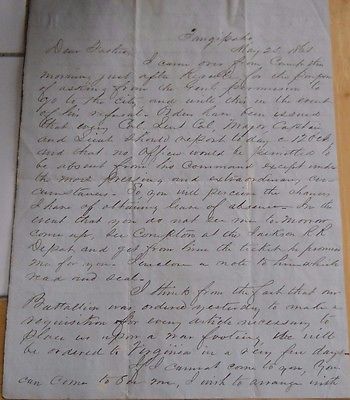 Tangipaho
May 25 1861
Dear Father
I came over from Compton
morning just after for the purpose
of asking from the Genl permission to
go to the city, and write this in the event
of his refusal. Orders have been issued
that every Col Lieut Col, Major Captain
and Lieut should report to day @ 12 Oclk
and that no Officer would be permitted to
be absent from his Command except under
the most pressing and extraordinary cir
cumstances. So you will perceive the chances
I have of obtaining leave of absence. In the
event that you do not see me to morrow
come up, see Compton at the Jackson RR
Depot and get from him the ticket he promised
me for you. I enclose a note to him which
read and seal.
I think from the fact that our
Battallion was ordered yesterday to make a
requisition for every article necessary to
place us upon a war footing, we will
be ordered to Virginia in a very few days.
If I cannot come to you, you
can come to see me, I wish to arrange with